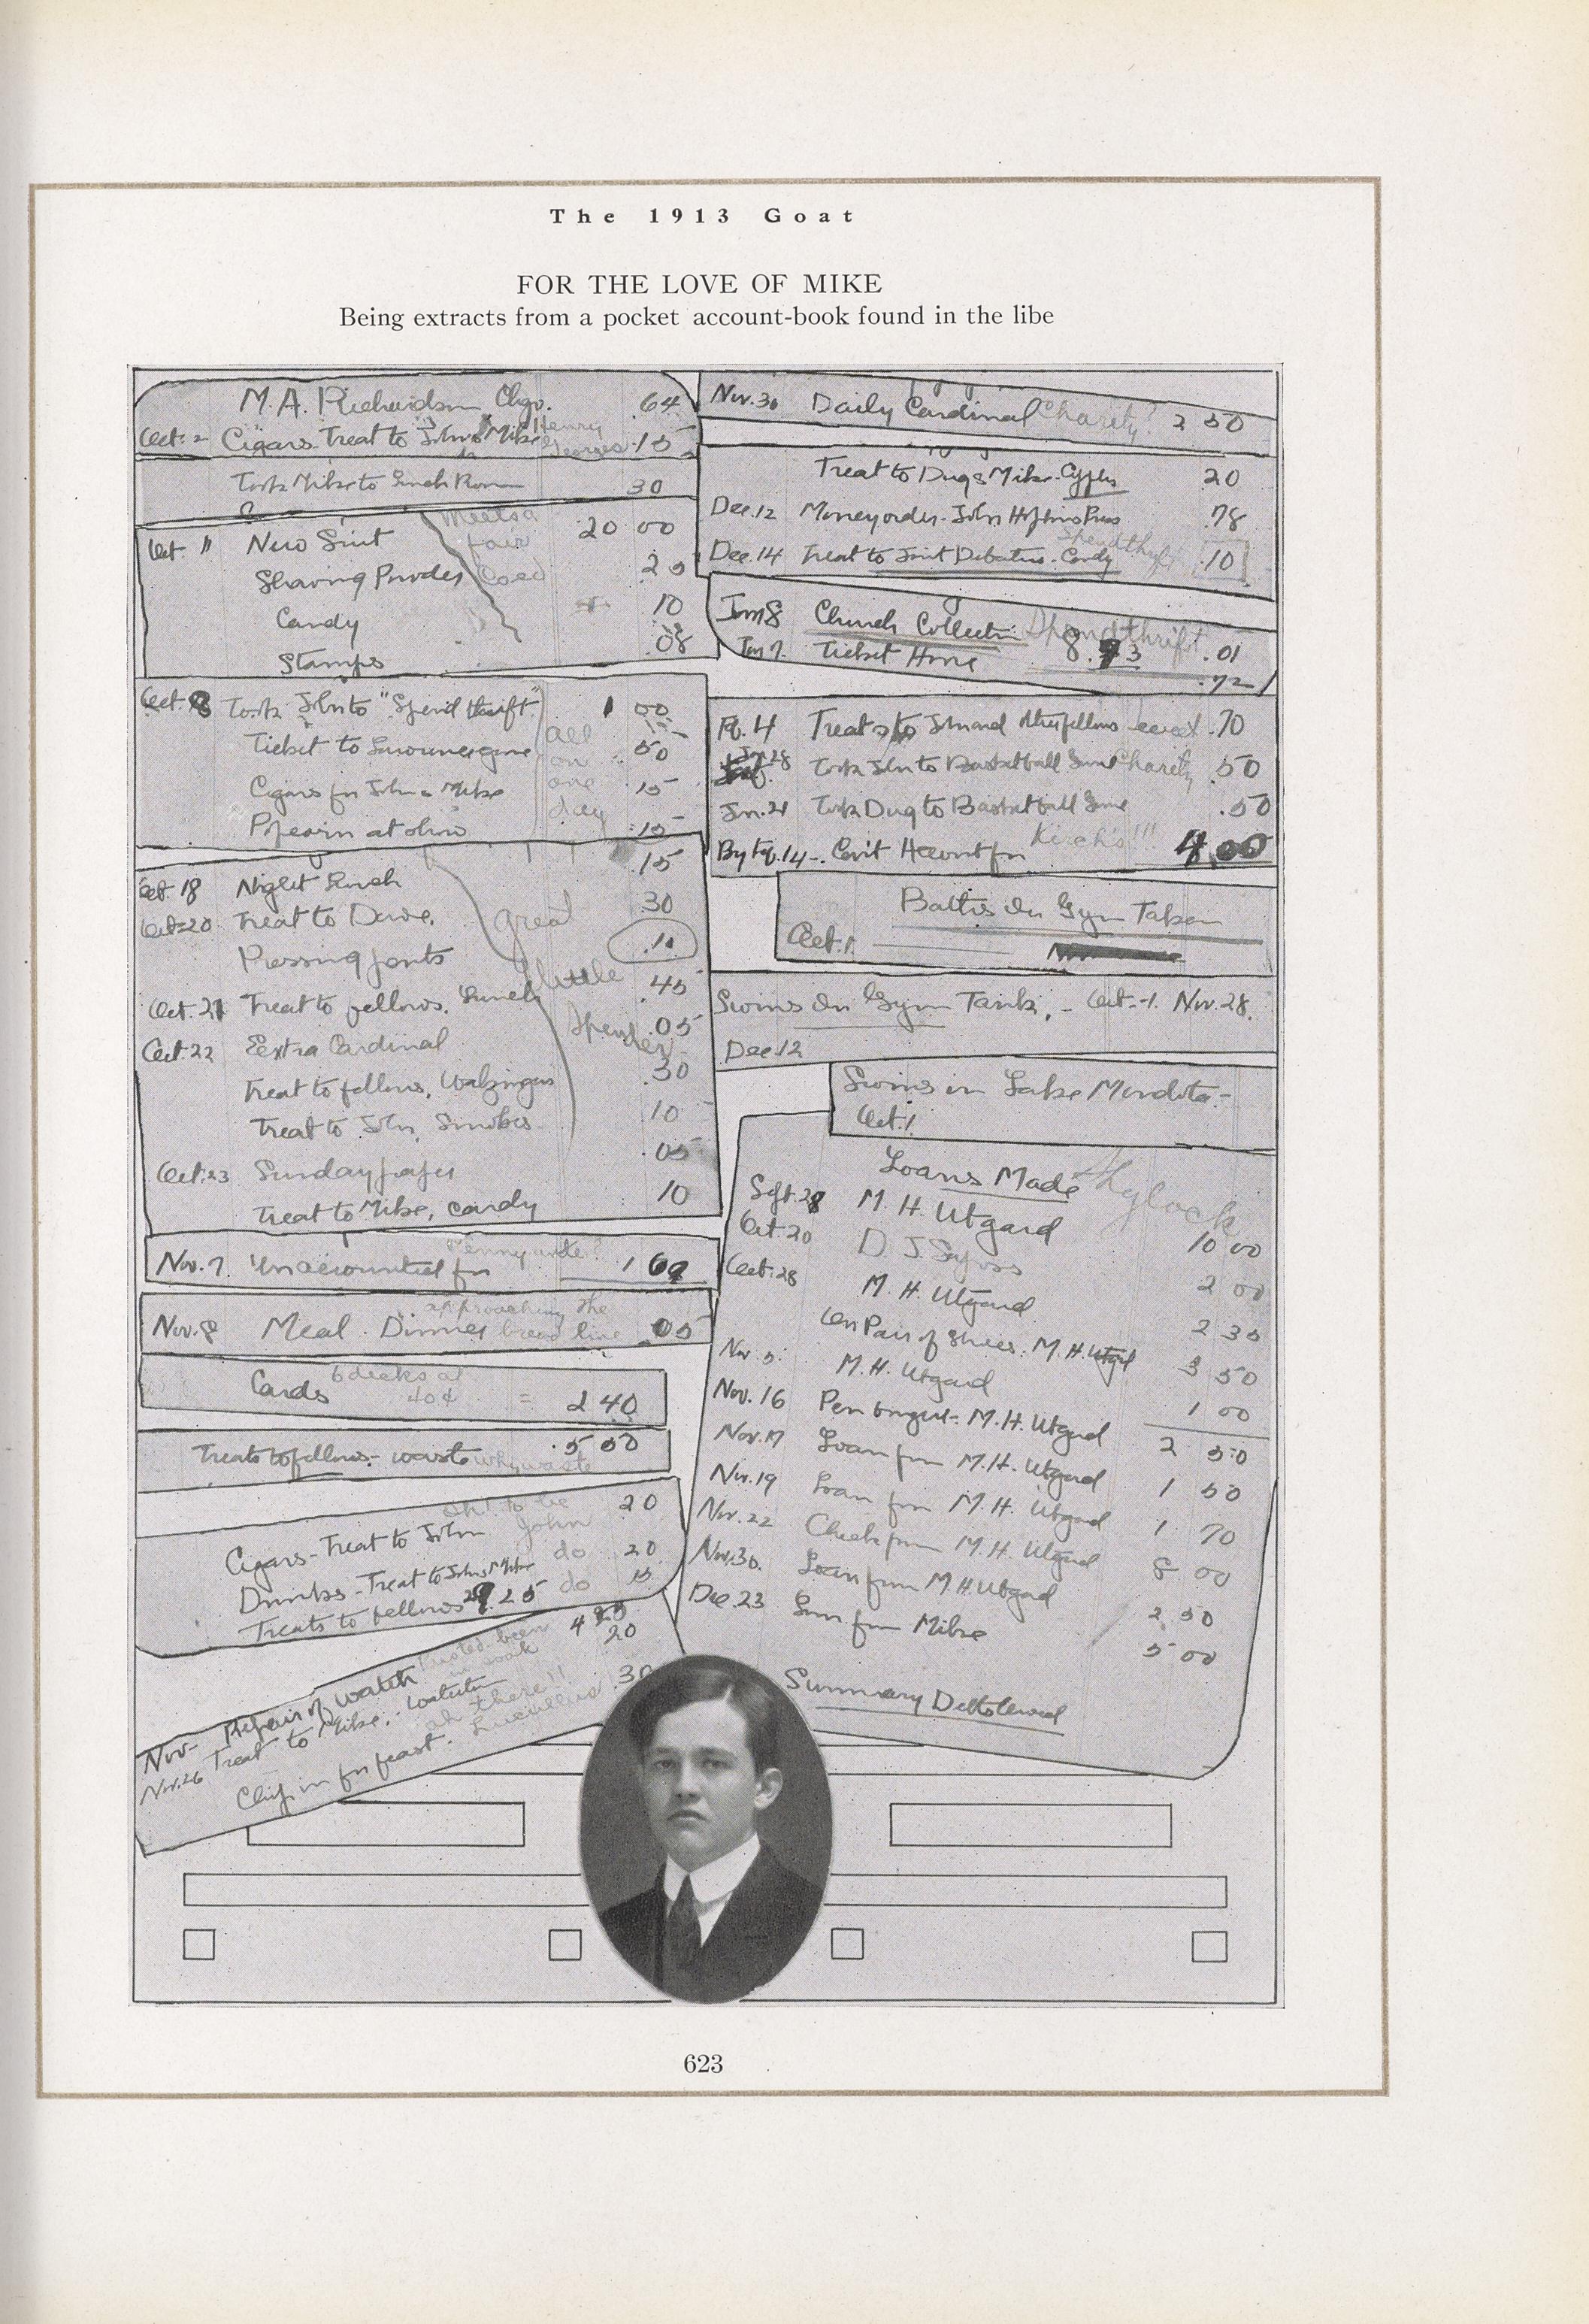 The 1913 Goat
FOR THE LOVE OF MIKE
Being extracts from a pocket account-book found in the libe
M. A. Richardson, Chgo. .64
Oct. 2 Cigars Treat to John & Mike Henry Georges .15
Took Mike to Lunch Room 30
Oct. 11 New Suit 20 00
Meets a fair Coed
Shaving Powder 25
Candy 10
Stamps .08
Oct. 8 Took John to "Spendthrift" 1 00
Ticket to 50
Cigars for John & Mike .15
Popcorn at show .15
all on one day
Oct. 18 Night Lunch .15
Oct. 20 Treat to Dave. 30
Pressing pants .10
Oct. 21 Treat to fellows. Lunch .45
Oct. 22 Extra Cardinal .05
Treat to fellows, .30
Treat to John, 10
Oct. 23 Sunday paper .05
Treat to Mike, candy 10
great little spender
Nov. 7 Unaccounted for 1 69
Penny ante?
Nov. 8 Meal. Dinner .05
approaching the bread line
Cards 6 decks at 40¢ = 2 40
Treats to fellows - waste why waste .5 50
Cigars - Treat to John 20
Oh! to be John
Drinks - Treat to John & Mike do 20
Treats to fellows 9.25 do 15
Nov- Repair of watch 4
Nov. 26 Treat to Mike, - 20
Chip in for feast. .30
ah there!! Lucullus
Nov. 30 Daily Cardinal Charity! 2 50
Treat to Dug & Mike - 20
Dec. 12 Money order - John Hopkins Press .78
Dec. 14 Treat to Joint Debaters - Candy .10
Spendthrift
Jan 8 Church Collection Spendthrift .01
Jan 7. Ticket Home 8.93
.72
Fb. 4 Treats to John and other fellows .70
Jan. 28 Took John to Basketball Game Charity .50
Jan. 21 Took Dug to Basketball Game .50
By Feb. 14 - Can't Account for Keeleys!!! 4.00
Baths in Gym Taken
Oct. 1.
Swims in Gym Tank, - Oct. - 1. Nov. 28.
Dec 12
Swims in Lake Mendota -
Oct. 1.
Loans Made Shylock
Sept. 28 M. H. Utgard 10 00
Oct. 20 D. J. 2 00
Oct. 28 M. H. Utgard 2 35
On Pair of Shoes. M. H. Utgard 3 50
Nov. 5. M. H. Utgard 1 00
Nov. 16 Pen bought - M. H. Utgard 2 50
Nov. 17 Loan from M. H. Utgard 1 50
Nov. 19 Loan from M. H. Utgard 1 70
Nov. 22 Check from M. H. Utgard 8 00
Nov. 30. Loan from M. H. Utgard 2.50
Dec. 23 from Mike 5 00
Summary
623